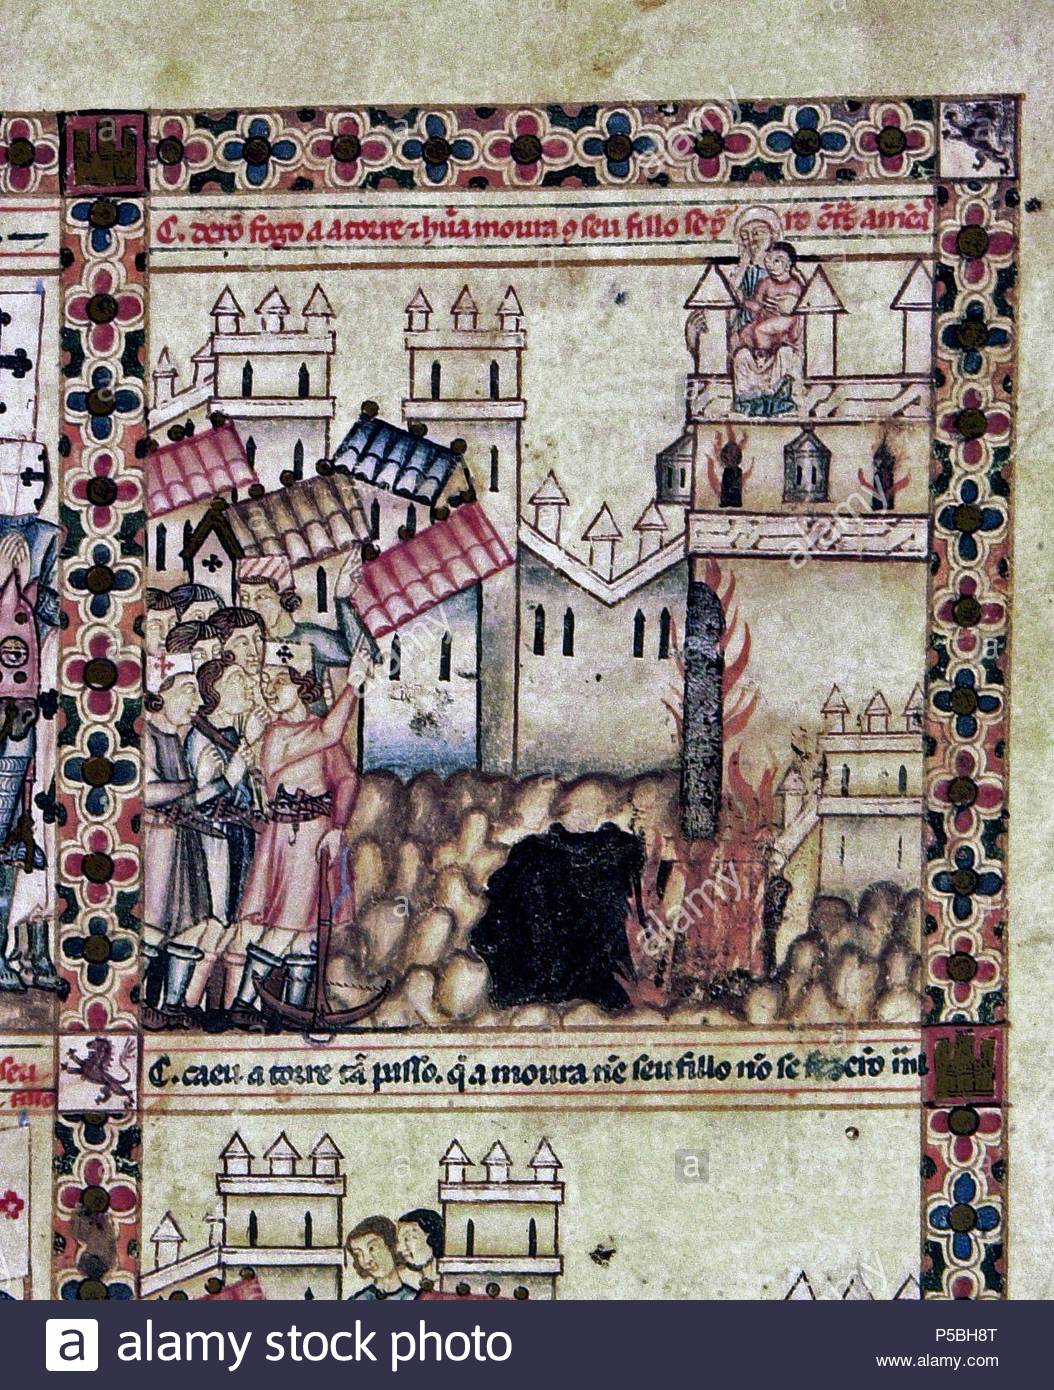 C. derõ fogo a a torre ⁊ hũa moura ꝯ seu fillo se p̃
seu
fillo
C. caeu a torre tã passo. q̃ a moura nẽ seu fillo nõ se fezerõ
a alamy stock photo
P5BH8T
www.alamy.com